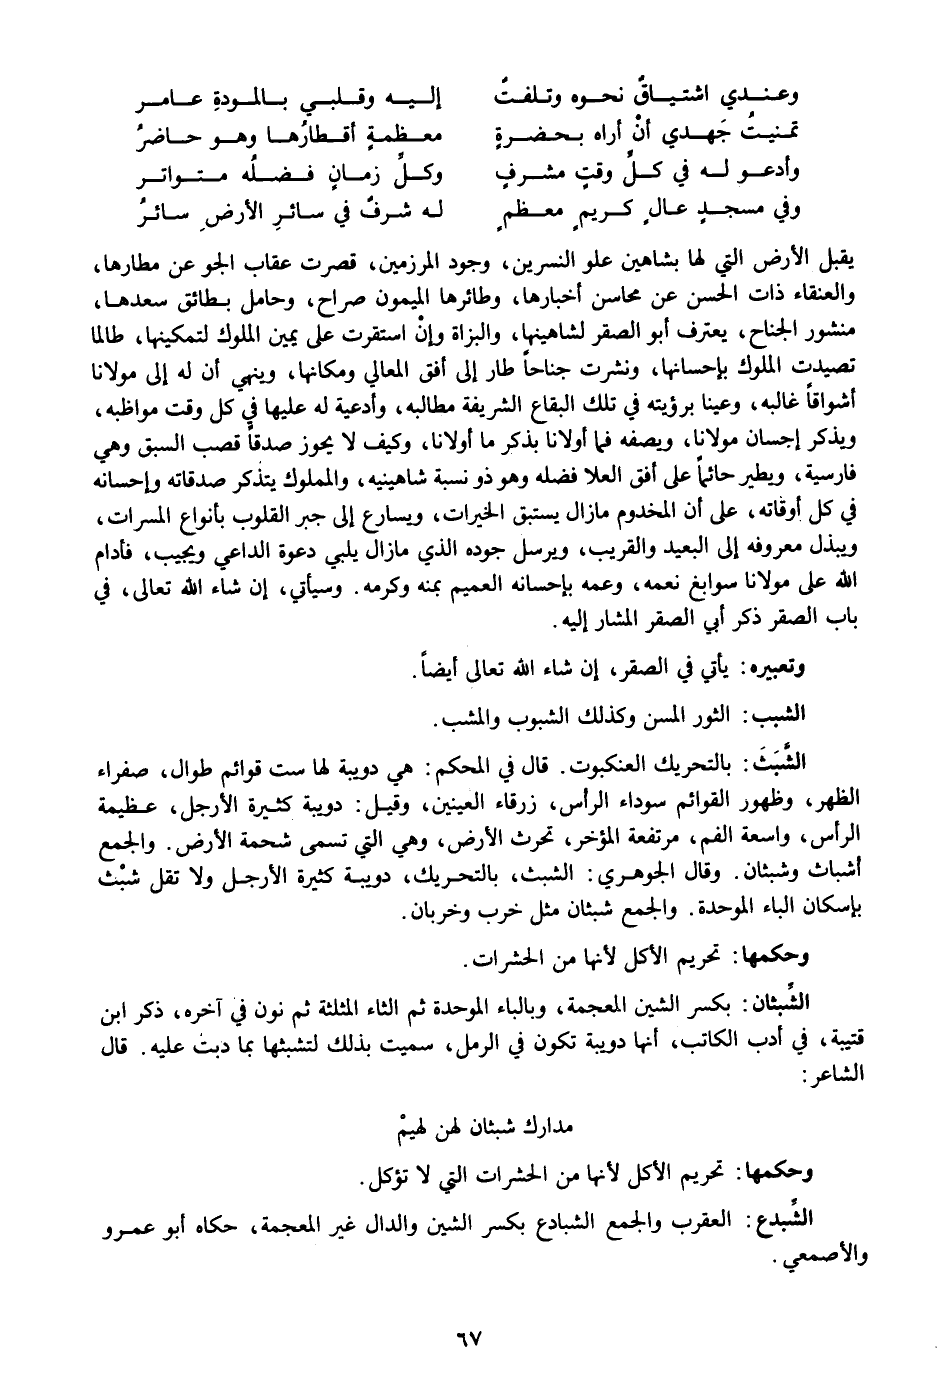 وعندي اشتياقٌ نحوه وتلفتٌ إليه وقلبي بالمودةِ عامر
تمنيتُ جَهدي أنْ أراه بحضرةٍ معظمةٍ أقطارُها وهو حاضرُ
وأدعو له في كلِّ وقتٍ مشرفٍ وكلِّ زمانٍ فضلُه متواترُ
وفي مسجدٍ عالٍ كريمٍ معظمٍ له شرفٌ في سائرِ الأرضِ سائرُ
يقبل الأرض التي لها بشاهين علو النسرين، وجود المرزمين، قصرت عقاب الجو عن مطارها،
والعنقاء ذات الحسن عن محاسن أخبارها، وطائرها الميمون صراح، وحامل بطائق سعدها،
منشور الجناح، يعترف أبو الصقر لشاهينها، والبزاة وإنْ استقرت على يمين الملوك لتمكينها، طالما
تصيدت الملوك بإحسانها، ونشرت جناحاً طار إلى أفق المعالي ومكانها، وينهي أن له إلى مولانا
أشواقاً غالبه، وعينا برؤيته في تلك البقاع الشريفة مطالبه، وأدعية له عليها في كل وقت مواظبه،
ويذكر إحسان مولانا، ويصفه فما أولانا بذكر ما أولانا، وكيف لا يحوز صدقاً قصب السبق وهي
فارسية، ويطير حائماً على أفق العلا فضله وهو ذو نسبة شاهينيه، والمملوك يتذكر صدقاته وإحسانه
في كل أوقاته، على أن المخدوم مازال يستبق الخيرات، ويسارع إلى جبر القلوب بأنواع المسرات،
ويبذل معروفه إلى البعيد والقريب، ويرسل جوده الذي مازال يلبي دعوة الداعي ويجيب، فأدام
الله على مولانا سوابغ نعمه، وعمه بإحسانه العميم بمنه وكرمه. وسيأتي، إن شاء الله تعالى، في
باب الصقر ذكر أبي الصقر المشار إليه.
وتعبيره: يأتي في الصقر، إن شاء الله تعالى أيضاً.
الشبب: الثور المسن وكذلك الشبوب والمشب.
الشَّبَثَ: بالتحريك العنكبوت. قال في المحكم: هي دويبة لها ست قوائم طوال، صفراء
الظهر، وظهور القوائم سوداء الرأس، زرقاء العينين، وقيل: دويبة كثيرة الأرجل، عظيمة
الرأس، واسعة الفم، مرتفعة المؤخر، تحرث الأرض، وهي التي تسمى شحمة الأرض. والجمع
أشباث وشبثان. وقال الجوهري: الشبث، بالتحريك، دويبة كثيرة الأرجل ولا تقل شبْث
بإسكان الباء الموحدة. والجمع شبثان مثل خرب وخربان.
وحكمها: تحريم الأكل لأنها من الحشرات.
الشِّبثان: بكسر الشين المعجمة، وبالباء الموحدة ثم الثاء المثلثة ثم نون في آخره، ذكر ابن
قتيبة، في أدب الكاتب، أنها دويبة تكون في الرمل، سميت بذلك لتشبثها بما دبت عليه. قال
الشاعر:
مدارك شبثان لهن لهيمْ
وحكمها: تحريم الأكل لأنها من الحشرات التي لا تؤكل.
الشِّبدع: العقرب والجمع الشبادع بكسر الشين والدال غير المعجمة، حكاه أبو عمرو
والأصمعي.
٦٧